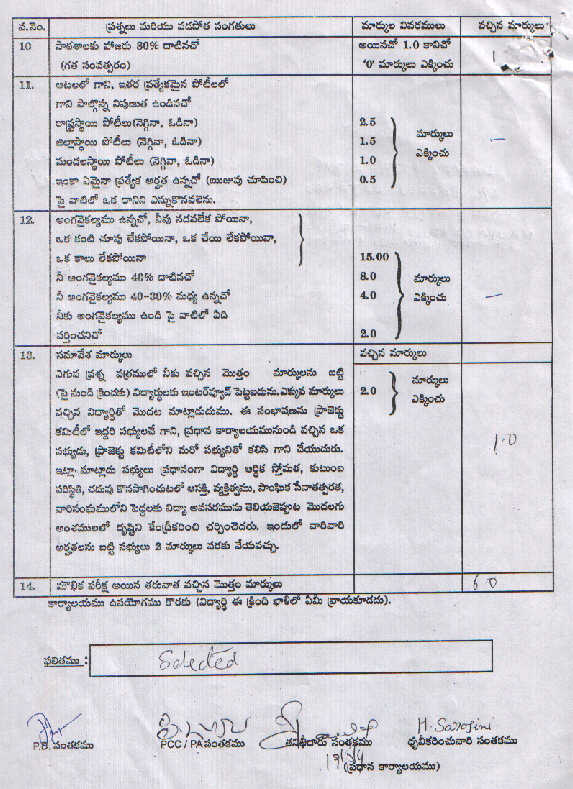 వ.నెం. ప్రశ్నలు మరియు పడపోత సంగతులు మార్కుల వివరములు వచ్చిన మార్కులు
10 పాఠశాలకు హాజరు 80% దాటినచో అయినచో 1.0 కానిచో 1
(గత సంవత్సరం) '0' మార్కులు ఎక్కించు
11. ఆటలలో గాని, ఇతర ప్రత్యేకమైన పోటీలలో
గాని పాల్గొన్న నిపుణుత ఉండినచో
రాష్ట్రస్థాయి పోటీలు(నెగ్గినా, ఓడినా) 2.5
జిల్లాస్థాయి పోటీలు (నెగ్గినా, ఓడినా) 1.5 మార్కులు –
మండలస్థాయి పోటీలు (నెగ్గినా, ఓడినా) 1.0 ఎక్కించు
ఇంకా ఏమైనా ప్రత్యేక అర్హత ఉన్నచో (ఋజువు చూపించి) 0.5
పై వాటిలో ఒక దానిని ఎన్నుకొనవలెను.
12. అంగవైకల్యము ఉన్నచో, నీవు నడవలేక పోయినా,
ఒక కంటి చూపు లేకపోయినా, ఒక చేయి లేకపోయినా,
ఒక కాలు లేకపోయినా 15.00
నీ అంగవైకల్యము 40% దాటినచో 8.0 మార్కులు
నీ అంగవైకల్యము 40-30% మధ్య ఉన్నచో 4.0 ఎక్కించు –
నీకు అంగవైకల్యము ఉండి పై వాటిలో ఏది
వర్తించనిచో 2.0
13. సమావేశ మార్కులు వచ్చిన మార్కులు
ఎగువ ప్రశ్న పత్రములో నీకు వచ్చిన మొత్తం మార్కులను బట్టి
(పై నుండి క్రిందకు) విద్యార్థులకు ఇంటర్వ్యూ పెట్టబడును.ఎక్కువ మార్కులు 2.0 మార్కులు
వచ్చిన విద్యార్థితో మొదట మాట్లాడుదుము. ఈ సంభాషణను ప్రాజెక్టు ఎక్కించు
కమిటీలో ఇద్దరి సభ్యులచే గాని, ప్రధాన కార్యాలయమునుండి వచ్చిన ఒక
సభ్యుడు, ప్రాజెక్టు కమిటీలోని మరో సభ్యునితో కలిసి గాని చేయుదురు. 1.0
ఇట్లా మాట్లాడు సభ్యులు ప్రధానంగా విద్యార్థి ఆర్థిక స్తోమత, కుటుంబ
పరిస్థితి, చదువు కొనసాగించుటలో ఆసక్తి, వ్యక్తిత్వము, సాంఘిక సేవాతత్పరత,
వారిసంఘములోని పెద్దలకు విద్యా అవసరమును తెలియజెప్పుట మొదలగు
అంశములలో దృష్టిని కేంద్రీకరించి చర్చించెదరు. ఇందులో వారివారి
అర్హతలను బట్టి సభ్యులు 2 మార్కులు వరకు వేయవచ్చు.
14. మౌఖిక పరీక్ష అయిన తరువాత వచ్చిన మొత్తం మార్కులు
కార్యాలయము ఉపయోగము కొరకు (విద్యార్థి ఈ క్రింది ఖాళీలో ఏమీ వ్రాయకూడదు).
ఫలితము : Selected
H. Sarojini
P.D. సంతకము PCC / PA సంతకము తనిఖీదారు సంతకము ధృవీకరించువారి సంతకము
(ప్రధాన కార్యాలయము)